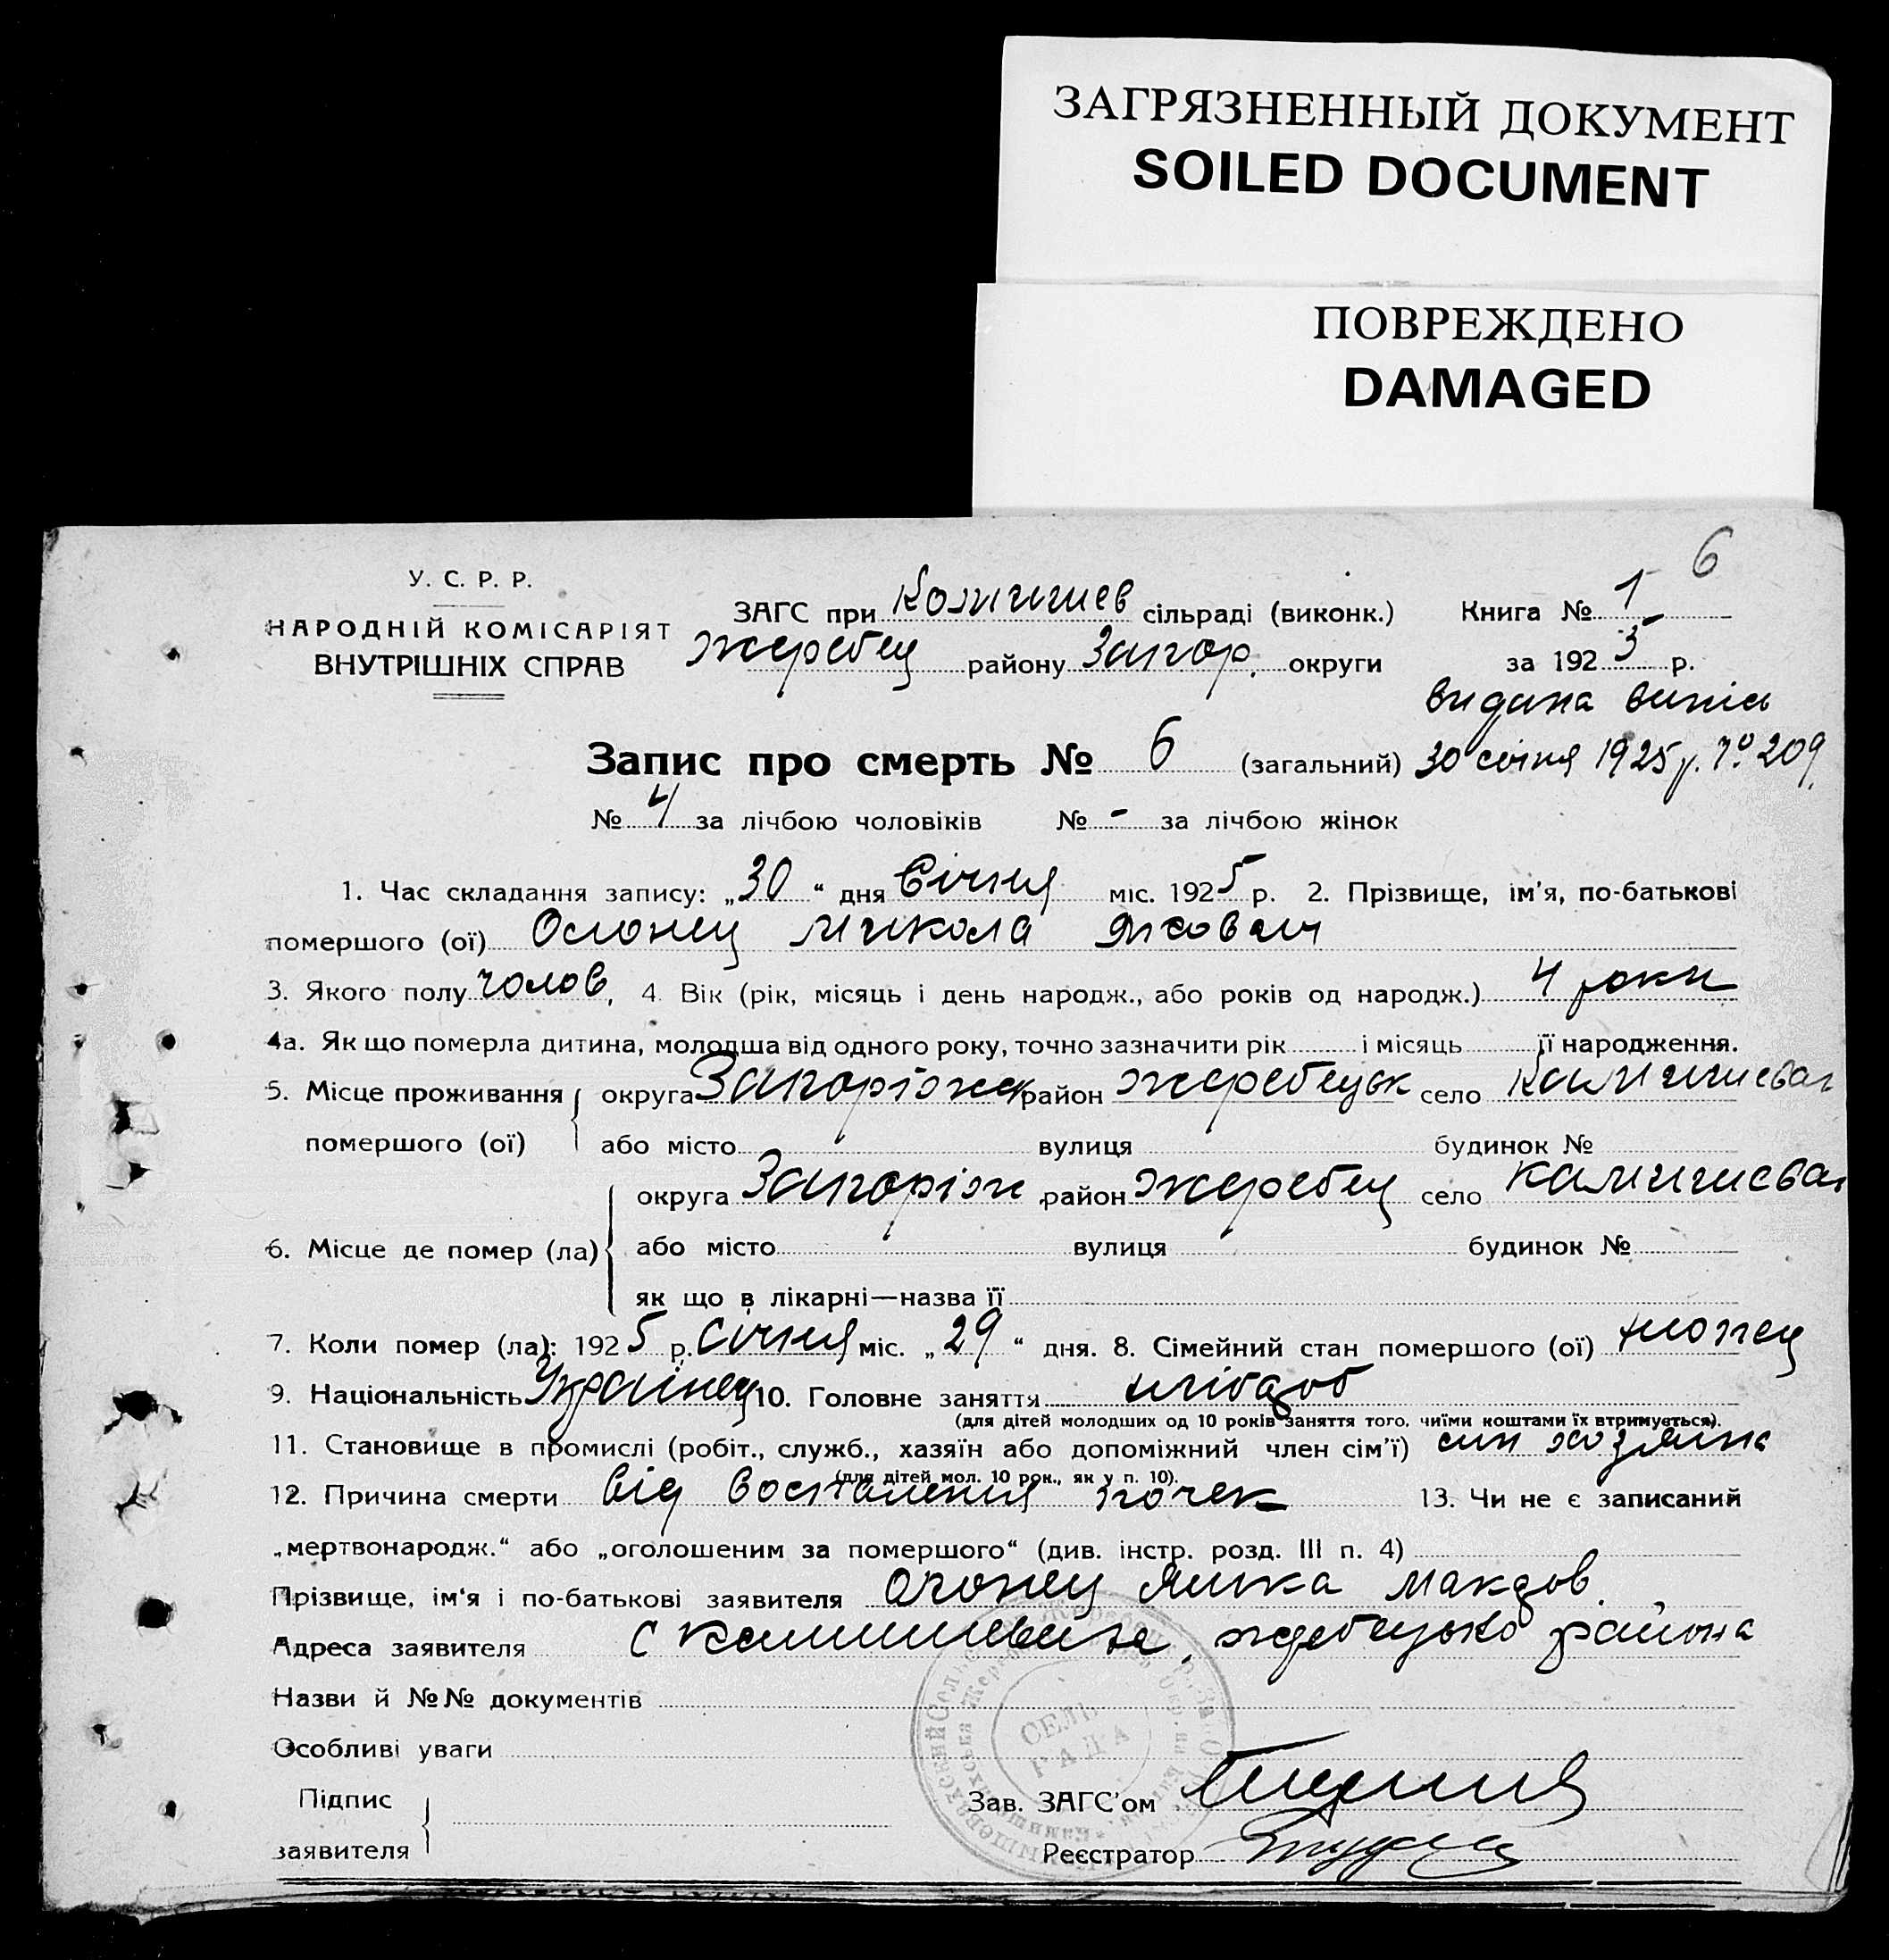 ЗАГРЯЗНЕННЫЙ ДОКУМЕНТ
SOILED DOCUMENT
ПОВРЕЖДЕНО
DAMAGED
6
У. С. Р. Р.
НАРОДНІЙ КОМІСАРІЯТ
ВНУТРІШНІХ СПРАВ
ЗАГС при Комишев сільраді (виконк.) Книга № 1
Жеребец району Запор. округи за 1925 р.
видана випись
Запис про смерть № 6 (загальний) 30 січня 1925 р. № 209
№ 4 за лічбою чоловіків № - за лічбою жінок
1. Час складання запису: „30“ дня Січня міс. 1925 р. 2. Прізвище, ім'я, по-батькові
помершого (ої) Микола
3. Якого полу чолов. 4. Вік (рік, місяць і день народж., або років од народж.) 4 роки
4а. Як що померла дитина, молодша від одного року, точно зазначити рік і місяць її народження.
5. Місце проживання округа Запоріжск район Жеребецьк село
помершого (ої) або місто вулиця будинок №
округа Запоріж район Жеребец село
6. Місце де помер (ла) або місто вулиця будинок №
як що в лікарні—назва її
7. Коли помер (ла): 1925 р. Січня міс. „29“ дня. 8. Сімейний стан помершого (ої)
9. Національність Українец 10. Головне заняття хлібороб
(для дітей молодших од 10 років заняття того, чиїми коштами їх втримується).
11. Становище в промислі (робіт., служб., хазяїн або допоміжний член сім'ї) син хозяина
(для дітей мол. 10 рок., як у п. 10).
12. Причина смерти від воспаления почек 13. Чи не є записаний
„мертвонародж.“ або „оголошеним за помершого“ (див. інстр. розд. III п. 4)
Прізвище, ім'я і по-батькові заявителя
Адреса заявителя с района
Назви й №№ документів
Особливі уваги
СЕЛЬ
РАДА
Підпис
заявителя
Зав. ЗАГС'ом
Реєстратор